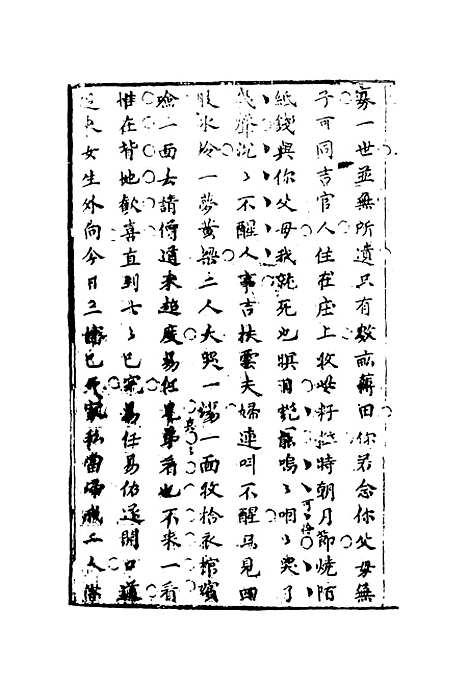 寡一世並無所遺只有數畝薄田你若念你父母無
子可同吉官人住在庄上收些籽粒時朝月節燒陌
紙錢與你父母我就死也瞑目艷雲嗚嗚咽咽哭了
可憐
幾齊沉沉不醒人事吉扶雲夫婦連叫不醒馬見四
肢水冷一夢黃粱二人大哭一場一面收拾衣棺殯
殮一面去請僧道來超度易任兄弟看也不來一看
惟在背地歡喜直到七七已完易任易佑遂開口道
從來女生外向今日三嬸已死家私當歸我二人